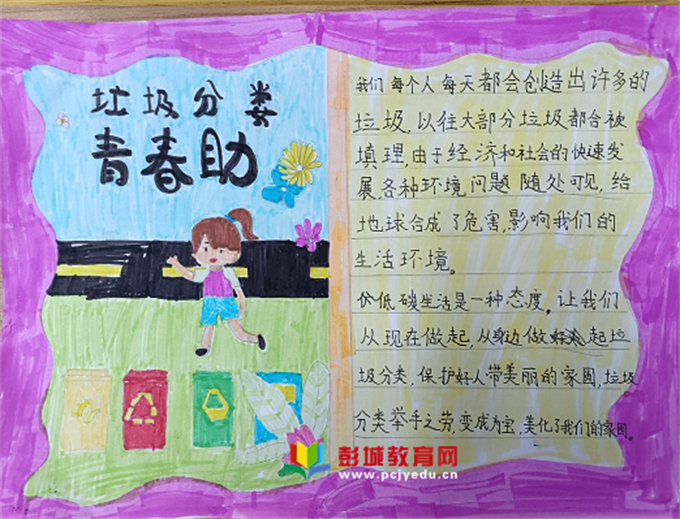 垃圾分类
青春助
我们每个人每天都会创造出许多的
垃圾,以往大部分垃圾都合被
填理,由于经济和社会的快速发
展,各种环境问题随处可见,给
地球合成了危害,影响我们的
生活环境。
价低碳生活是一种态度,让我们
从现在做起,从身边做起垃
圾分类,保护好人带美丽的家园,垃圾
分类举手之劳,变成为宝,美化了我们的家园。
彭城教育网
www.pcjyedu.cn